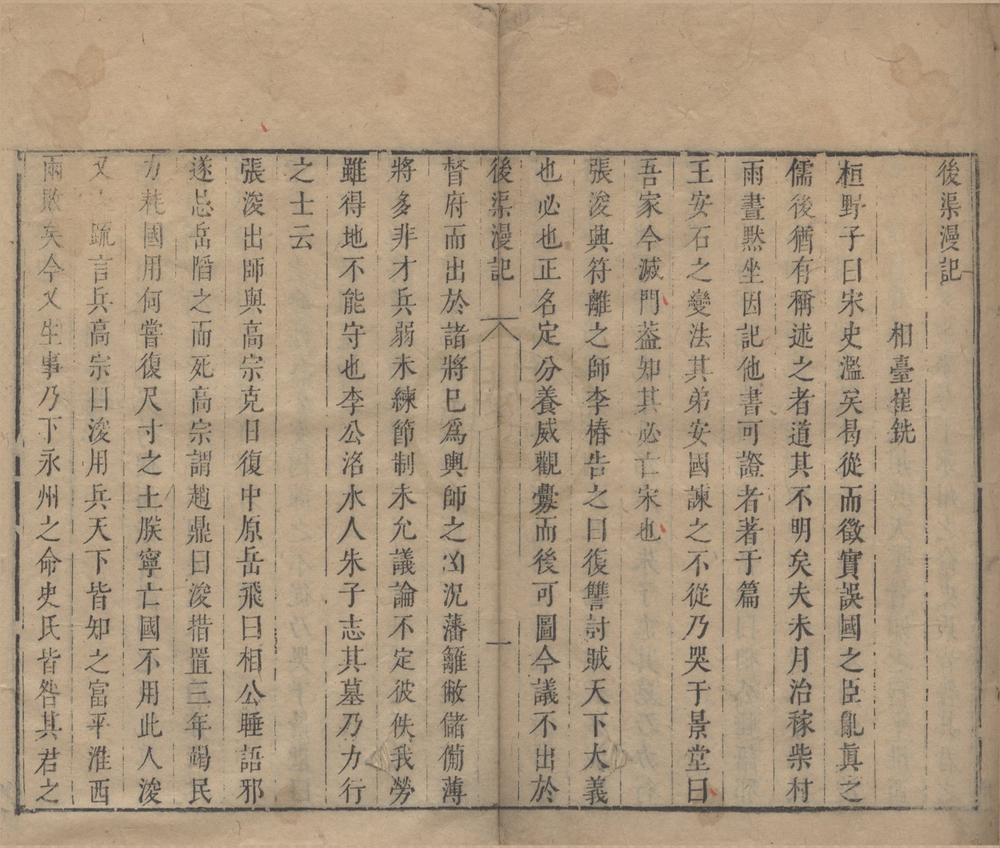 後渠漫記
相臺崔銑
桓野子曰宋史濫矣曷從而徵實誤國之臣亂真之
儒後猶有稱述之者道其不明矣夫未月治稼柴村
雨晝默坐因記他書可證者著于篇
王安石之變法其弟安國諫之不從乃哭于景堂曰
吾家今滅門葢知其必亡宋也
張浚興符離之師李椿告之曰復讐討賊天下大義
也必也正名定分養威觀釁而後可圖今議不出於
後渠漫記 一
督府而出於諸將已為輿師之凶況藩籬敝儲偹薄
將多非才兵弱未練節制未允議論不定彼佚我勞
雖得地不能守也李公洛水人朱子志其墓乃力行
之士云
張浚出師與高宗克日復中原岳飛曰相公睡語邪
遂忌岳陷之而死高宗謂趙鼎曰浚措置三年竭民
力耗國用何嘗復尺寸之土朕寧亡國不用此人浚
又上疏言兵高宗曰浚用兵天下皆知之富平淮西
兩敗矣今又生事乃下永州之命史氏皆咎其君之